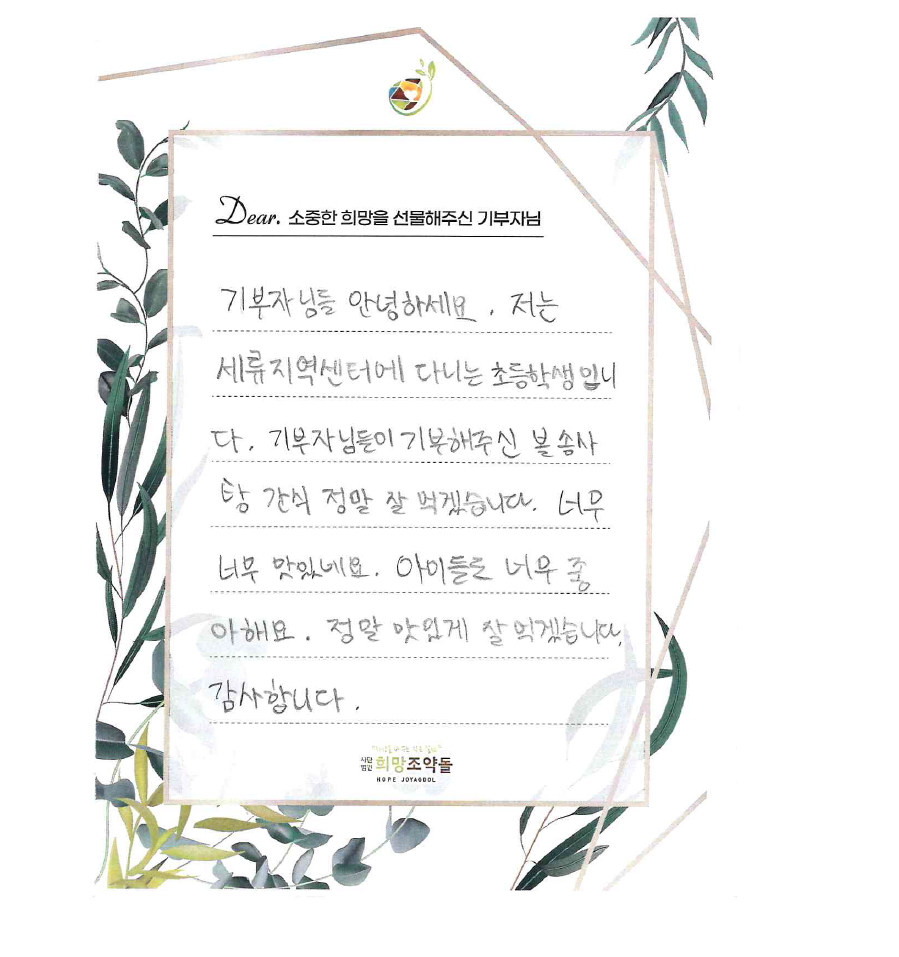 Dear. 소중한 희망을 선물해주신 기부자님
기부자님들 안녕하세요. 저는
세류지역센터에 다니는 초등학생입니
다. 기부자님들이 기부해주신 볼 송사
탕 간식 정말 잘 먹겠습니다. 너무
너무 맛있네요. 아이들도 너무 좋
아해요. 정말 맛있게 잘 먹겠습니다.
감사합니다.
사단
법인
희망조약돌
HOPE JOYAGDOL